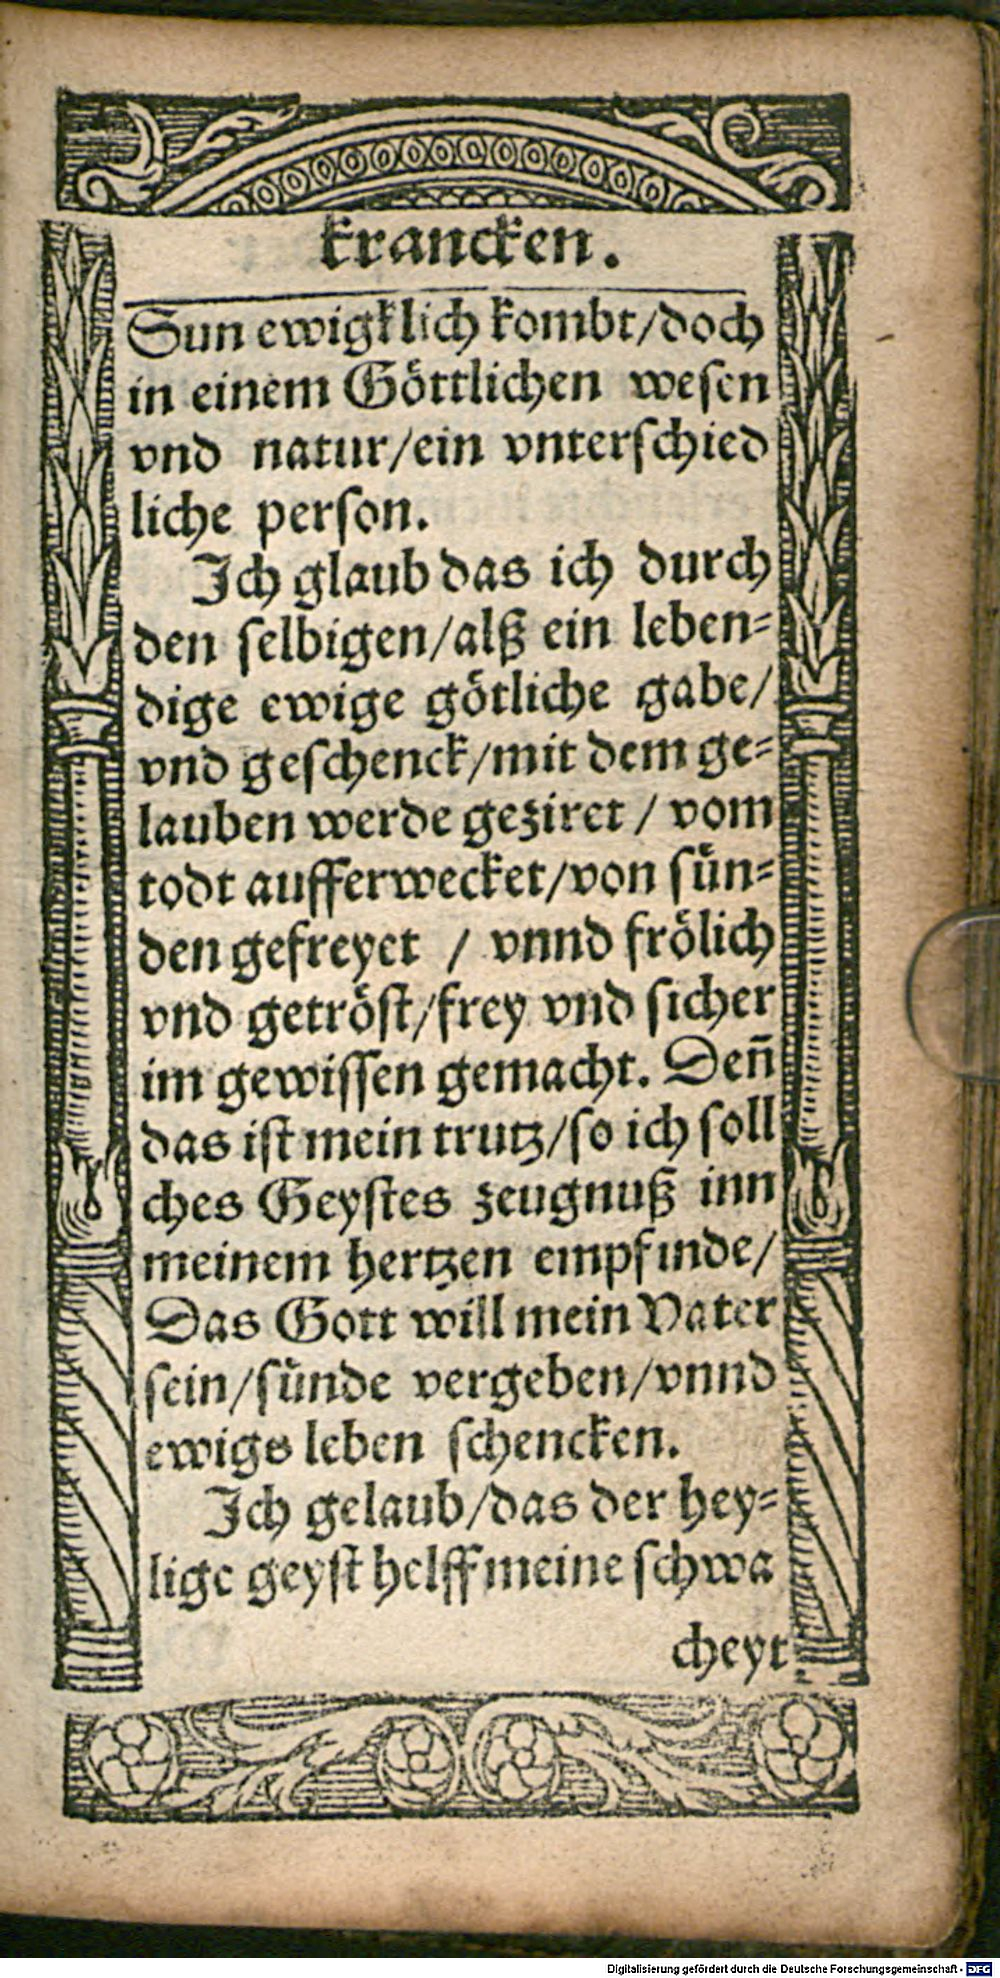 krancken.
Sun ewigklich kombt/doch
in einem Göttlichen wesen
vnd natur/ein vnterschied
liche person.
Ich glaub das ich durch
den selbigen/alß ein leben⸗
dige ewige götliche gabe/
vnd geschenck/mit dem ge⸗
lauben werde geziret / vom
todt aufferwecket/von sün⸗
den gefreyet / vnnd frölich
vnd getröst/frey vnd sicher
im gewissen gemacht. Deñ
das ist mein trutz/so ich soll
ches Geystes zeugnuß inn
meinem hertzen empfinde/
Das Gott will mein Vater
sein/sünde vergeben/vnnd
ewigs leben schencken.
Ich gelaub/das der hey⸗
lige geyst helff meine schwa
cheyt
Digitalisierung gefördert durch die Deutsche Forschungsgemeinschaft - DFG